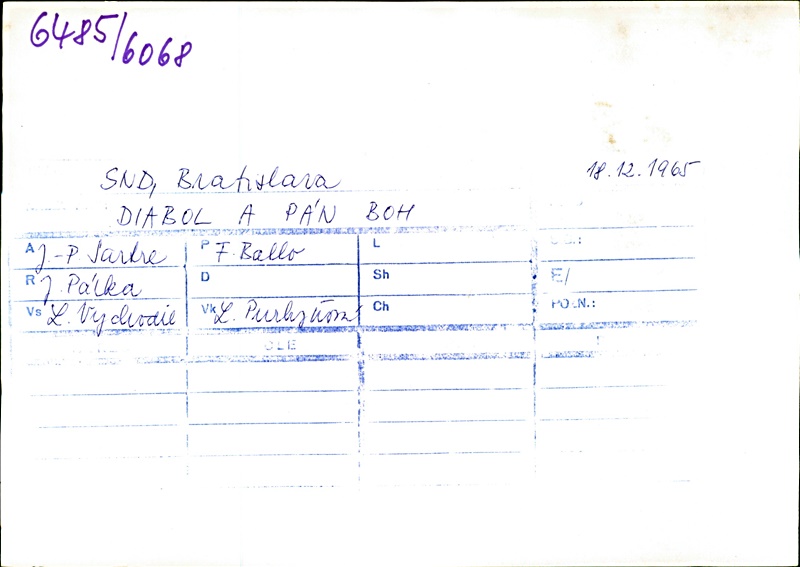 6485/6068
SND, Bratislava 18.12.1965
DIABOL A PÁN BOH
A J.-P. Sartre P F. Ballo L
R J. Pálka D Sh E/
Vs L. Vychodil Vk L. Purkyňová Ch POZN.: